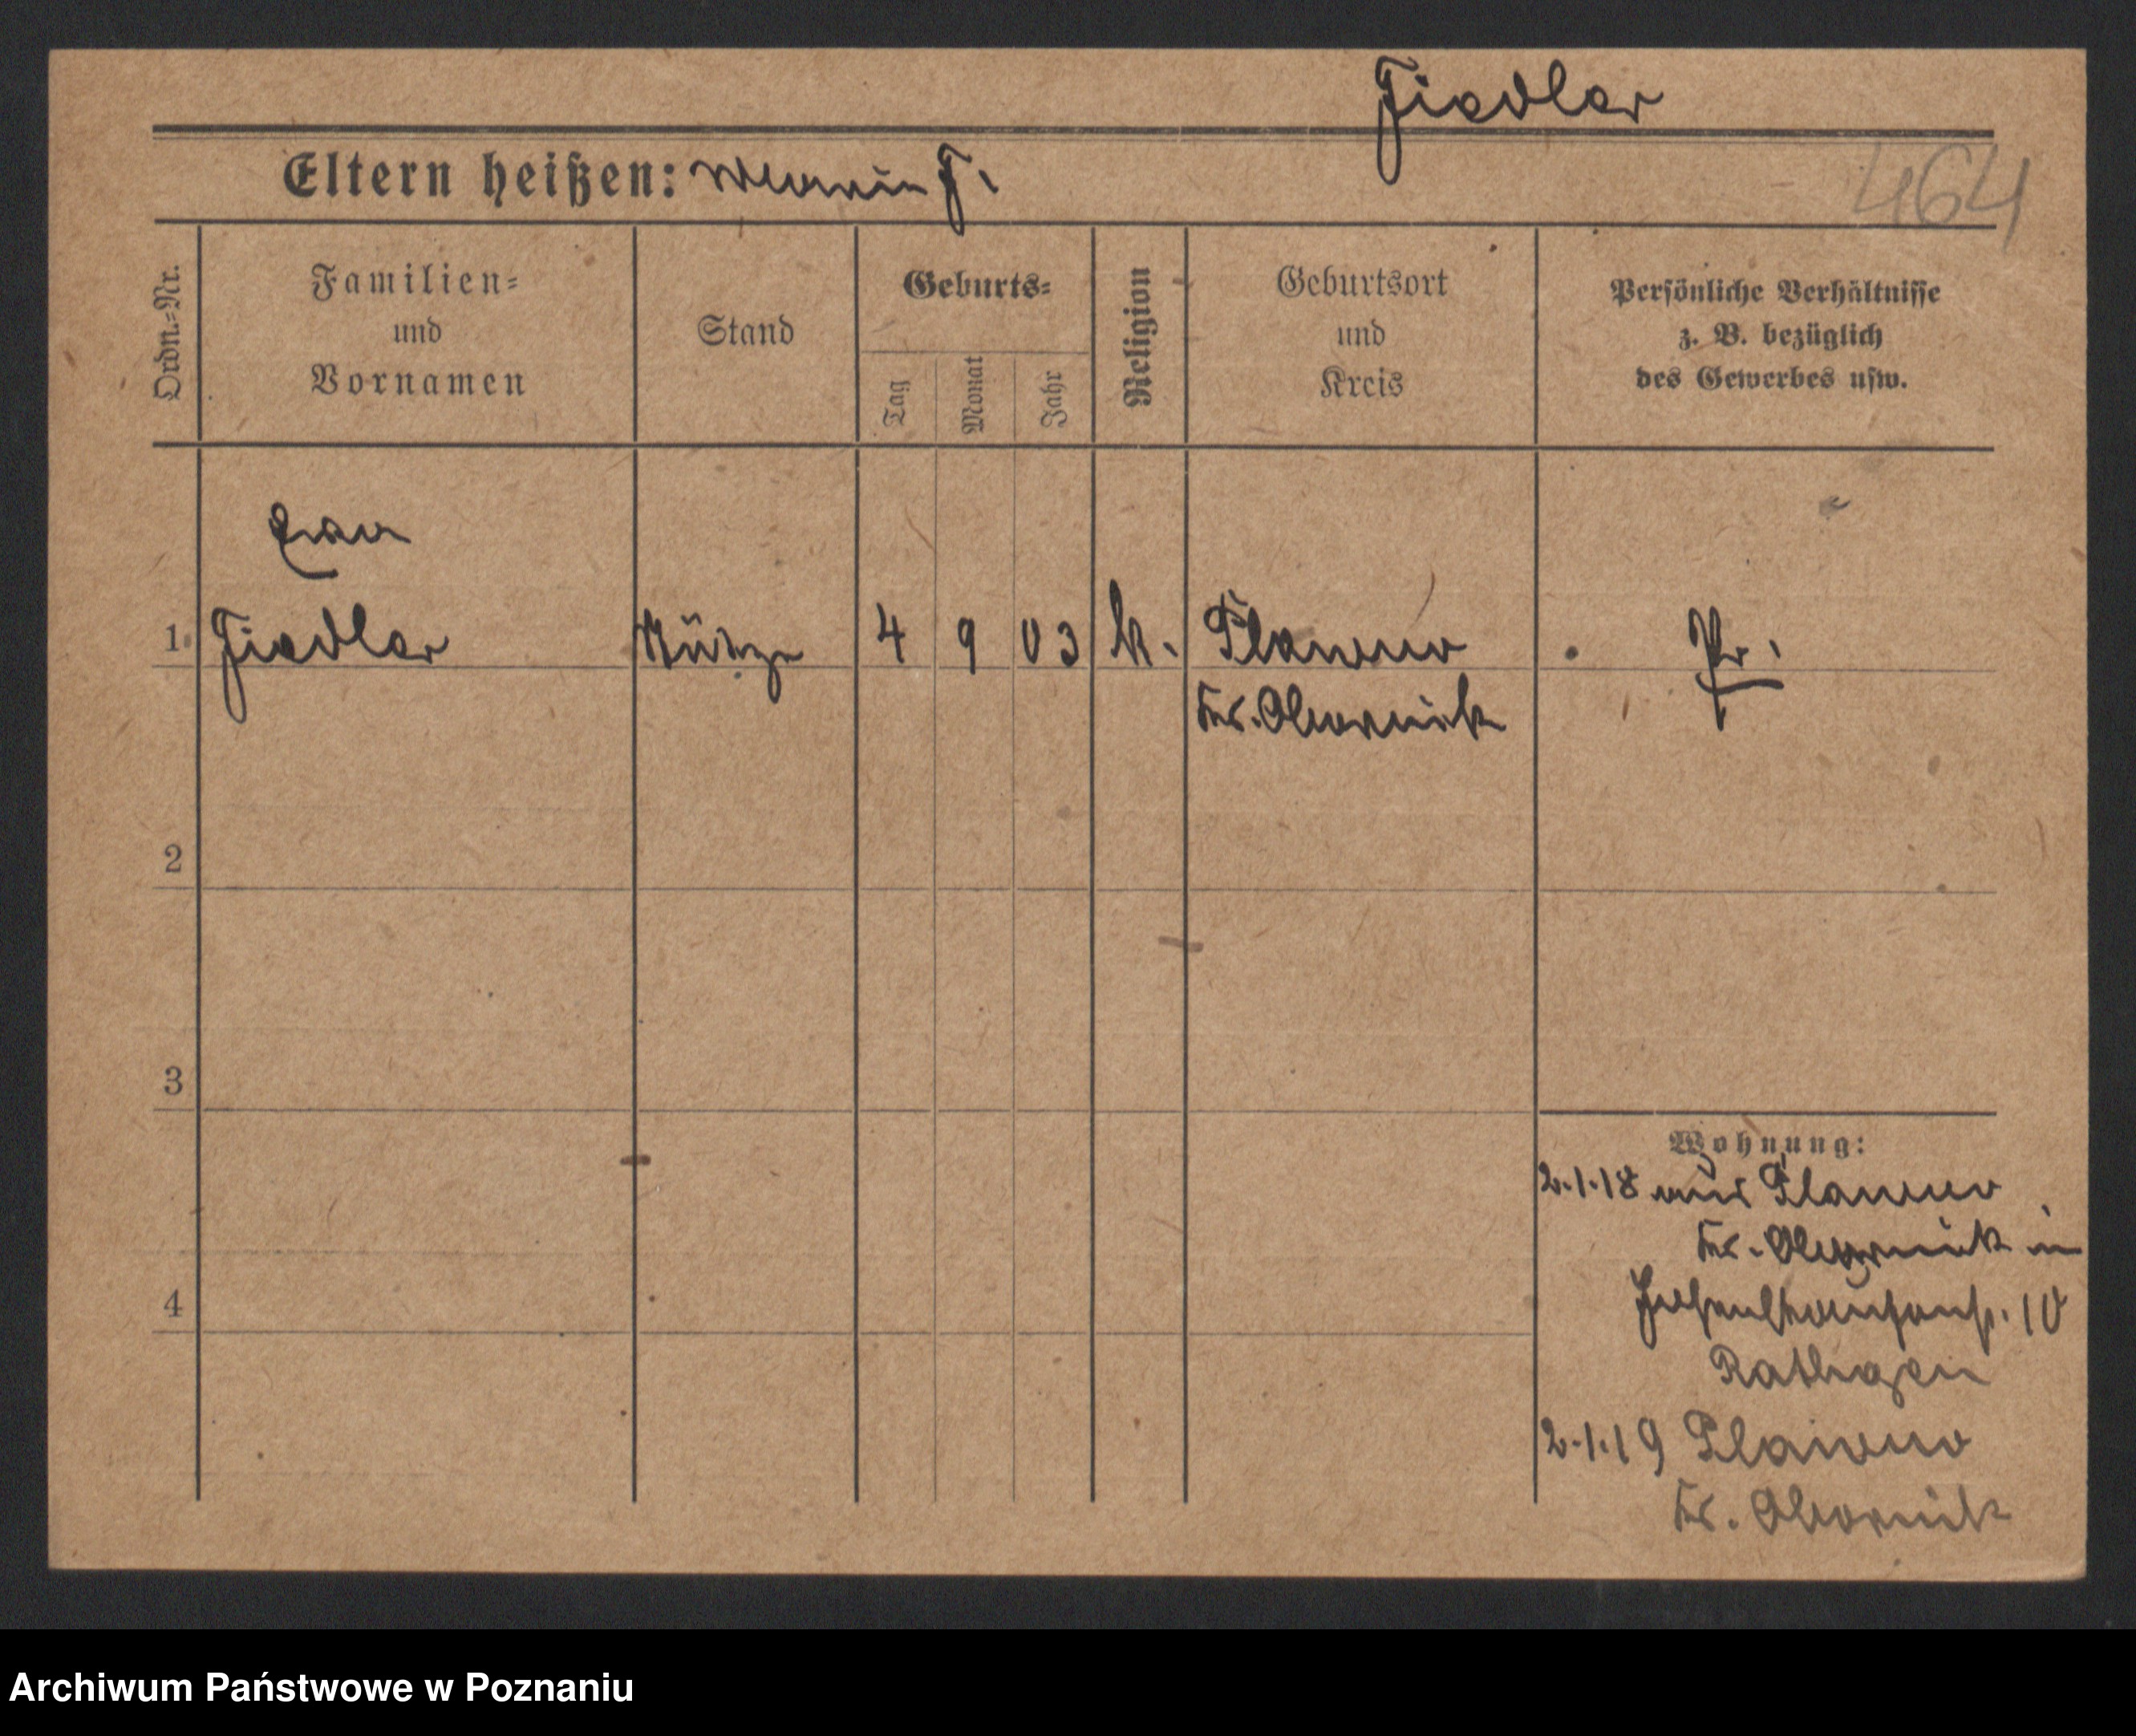 Fiedler
Eltern heißen: F.
464
Ordn.=Nr.
Familien=
und
Vornamen
Stand
Geburts=
Tag
Monat
Jahr
Religion
Geburtsort
und
Kreis
Persönliche Verhältnisse
z. B. bezüglich
des Gewerbes usw.
1 Fiedler 4 9 03 k. Plawno Pr.
Kr. Obornik
2
3
4
Wohnung:
2.1.18 aus Plawno
Kr. Obornik in
10
Rathgen
2.1.19 Plawno
Kr. Obornik
Archiwum Państwowe w Poznaniu